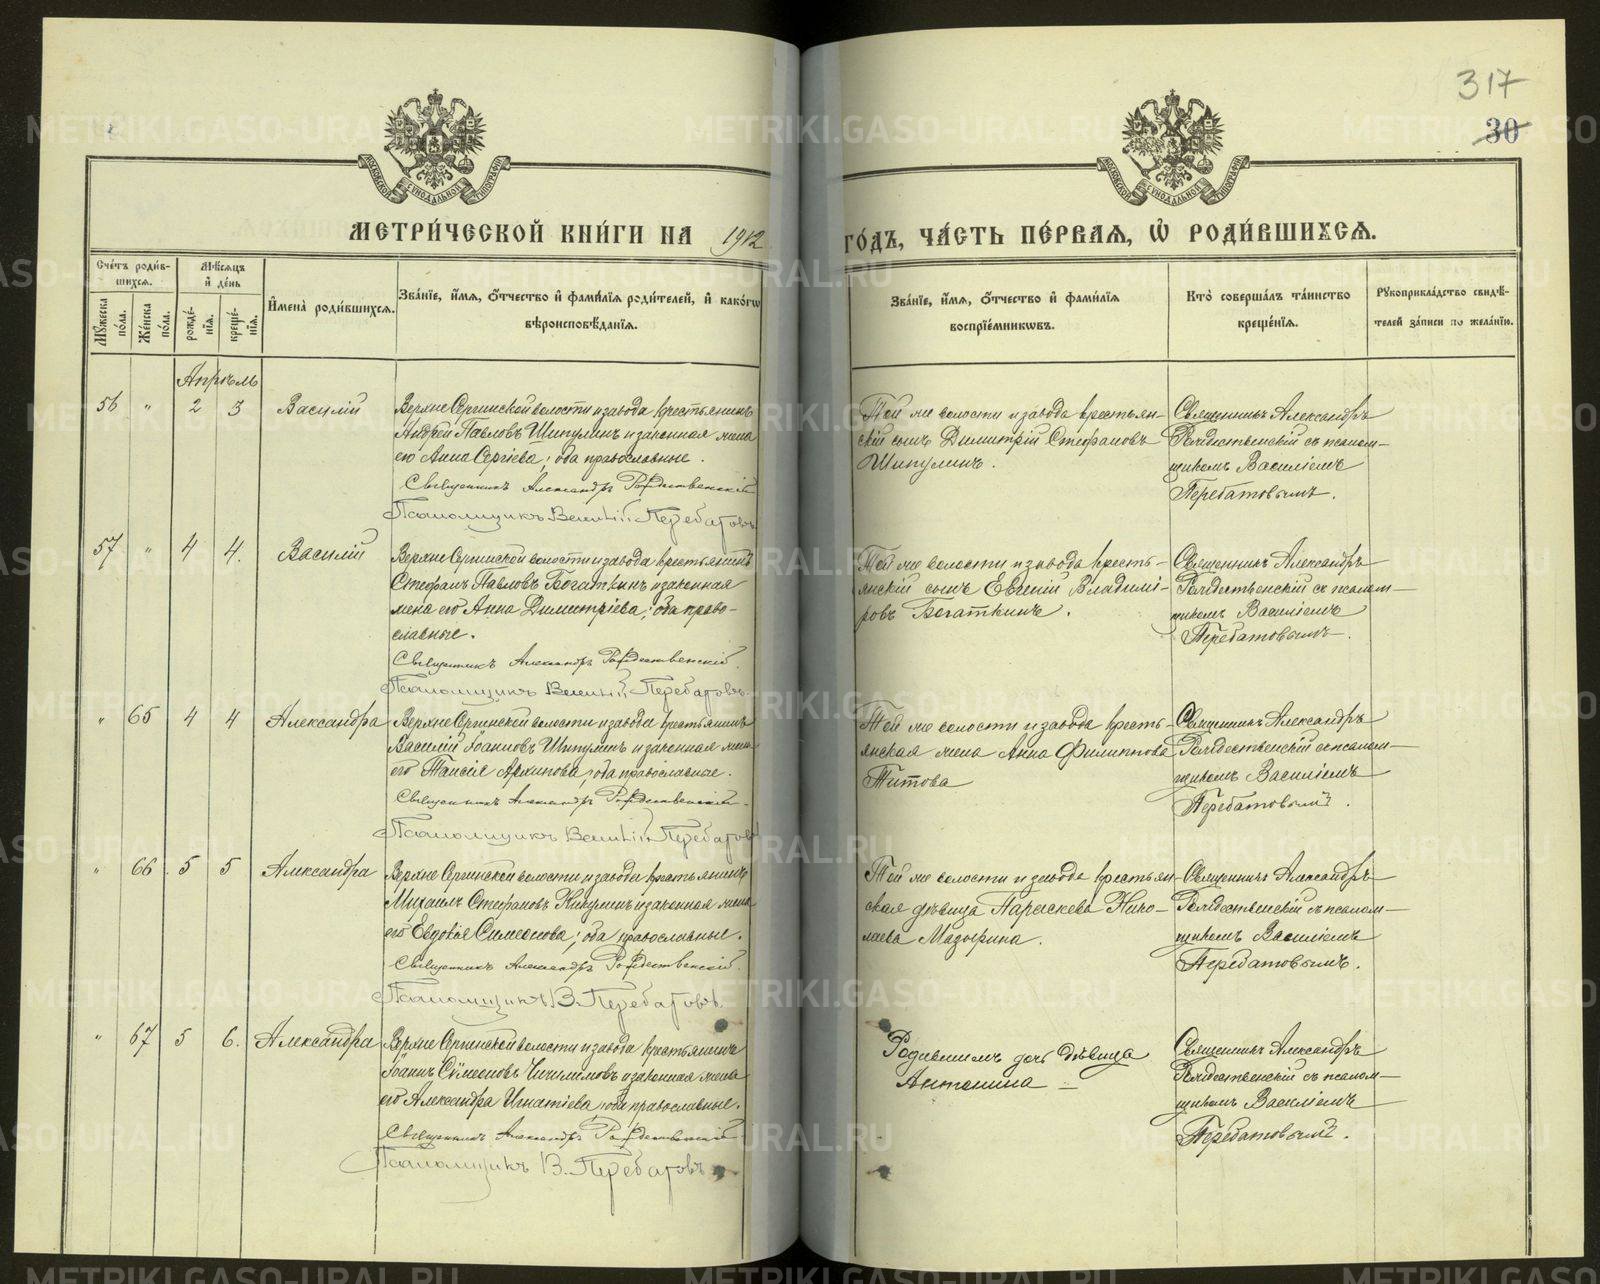 317
30
МОСКОВСКОЙ СѴНОДАЛЬНОЙ ТИПОГРАФІИ
МОСКОВСКОЙ СѴНОДАЛЬНОЙ ТИПОГРАФІИ
МЕТРИ́ЧЕСКОЙ КНИ́ГИ НА 1912 ГО́ДЪ, ЧА́СТЬ ПЕ́РВАЯ, Ѡ РОДИ́ВШИХСѦ.
Сче́тъ роди́в-
шихсѧ.
Мꙋ́жеска по́ла.
Же́нска по́ла.
Мѣ́сѧцъ
и҆ де́нь
рожде́-
нїѧ.
креще́-
нїѧ.
И҆мена̀ роди́вшихсѧ.
Зва́нїе, и҆́мѧ, ѻ҆́тчество и҆ фами́лїѧ роди́телей, и҆ како́гѡ
вѣроисповѣ́данїѧ.
Зва́нїе, и҆́мѧ, ѻ҆́тчество и҆ фами́лїѧ
воспрїе́мниковъ.
Кто̀ соверша́лъ та́инство
креще́нїѧ.
Рꙋкоприкла́дство свидѣ́-
телей за́писи по жела́нїю.
Апрѣль
56 " 2 3 Василій
Верхне Сергинской волости и завода крестьянинъ
Андрей Павловъ Шипулинъ и законная жена
его Анна Сергіева; оба православные.
Священникъ Александръ Рождественскій
Псаломщикъ Василій Перебатовъ
Той же волости и завода крестьян-
скій сынъ Димитрій Стефановъ
Шипулинъ.
Священникъ Александръ
Рождественскій съ псалом-
щикомъ Василіемъ
Перебатовымъ.
57 " 4 4. Василій
Верхне Сергинской волости и завода крестьянинъ
Стефанъ Павловъ Богаткинъ и законная
жена его Анна Димитріева; оба право-
славные.
Священникъ Александръ Рождественскій.
Псаломщикъ Василій Перебатовъ.
Той же волости и завода кресть-
янскій сынъ Евгеній Владимі-
ровъ Богаткинъ.
Священникъ Александръ
Рождественскій съ псалом-
щикомъ Василіемъ
Перебатовымъ.
" 65 4 4 Александра
Верхне Сергинской волости и завода крестьянинъ
Василій Іоанновъ Шипулинъ и законная жена
его Таисія Архипова; оба православные.
Священникъ Александръ Рождественскій
Псаломщикъ Василій Перебатовъ
Той же волости и завода кресть-
янская жена Анна Филиппова
Титова
Священникъ Александръ
Рождественскій съ псалом-
щикомъ Василіемъ
Перебатовымъ.
" 66 5 5 Александра
Верхне Сергинской волости и завода крестьянинъ
Михаилъ Стефановъ Кипулинъ и законная жена
его Евдокія Симеонова; оба православные.
Священникъ Александръ Рождественскій.
Псаломщикъ В. Перебатовъ.
Той же волости и завода крестьян-
ская дѣвица Параскева Нико-
лаева Мазырина.
Священникъ Александръ
Рождественскій съ псалом-
щикомъ Василіемъ
Перебатовымъ.
" 67 5 6. Александра
Верхне Сергинской волости и завода крестьянинъ
Іоаннъ Сѵмеоновъ и законная жена
его Александра Игнатіева; оба православные.
Священникъ Александръ Рождественскій
Псаломщикъ В. Перебатовъ
дочь дѣвица
Антонина
Священникъ Александръ
Рождественскій съ псалом-
щикомъ Василіемъ
Перебатовымъ.
METRIKI.GASO-URAL.RU